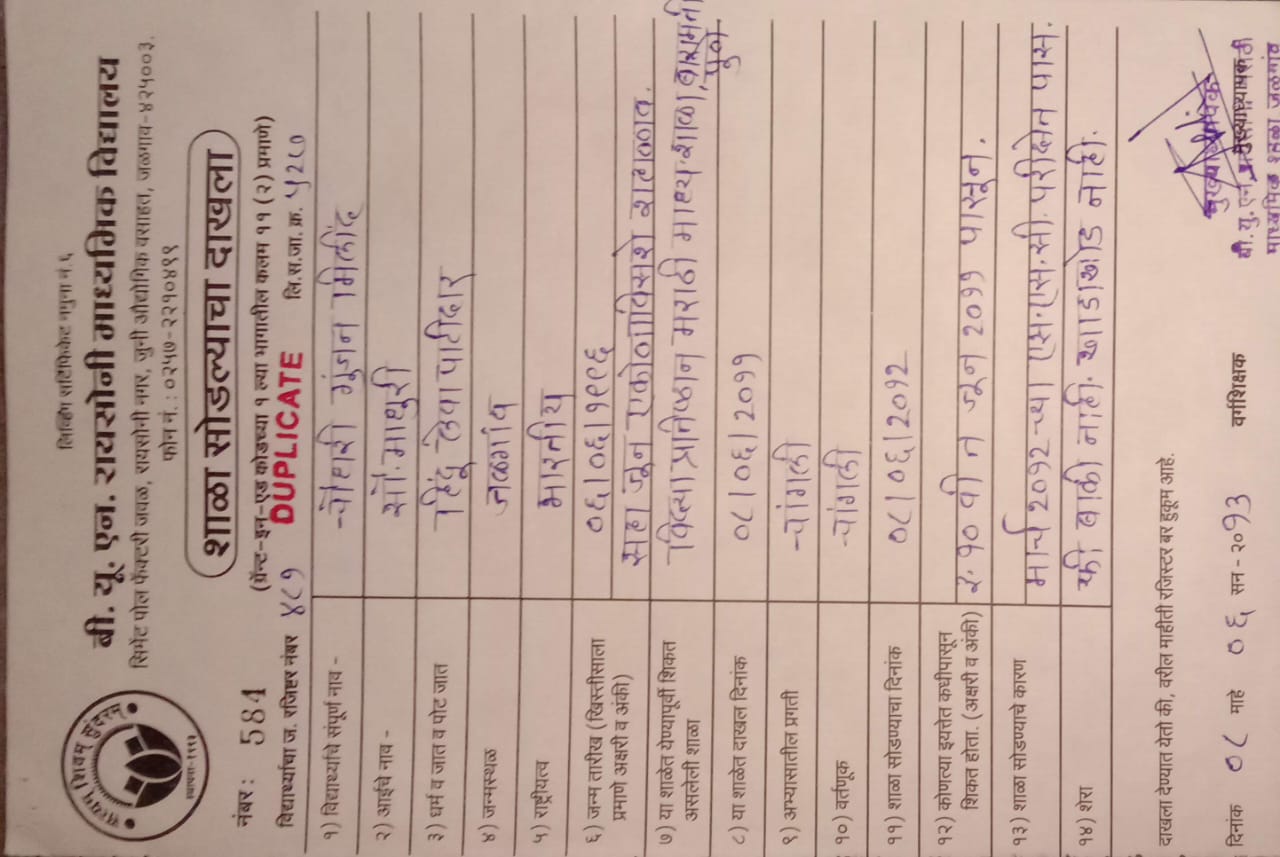 सत्यम् शिवम् सुंदरम्
लिव्हिंग सर्टिफिकेट नमुना नं. ६
बी. यू. एन. रायसोनी माध्यमिक विद्यालय
सिमेंट पोल फॅक्टरी जवळ, रायसोनी नगर, जुनी औद्योगिक वसाहत, जळगाव-४२५००३.
फोन नं. : ०२५७-२२१०४९९
शाळा सोडल्याचा दाखला
(ग्रॅन्ट-इन-एड कोडच्या १ ल्या भागातील कलम ११ (२) प्रमाणे)
नंबर : 584
DUPLICATE
विद्यार्थ्याचा ज. रजिष्टर नंबर ४८१ लि.स.जा.क्र. ५२८०
१) विद्यार्थ्याचे संपूर्ण नाव - चौधरी गुंजन मिलींद
२) आईचे नाव - सौ. माधुरी
३) धर्म व जात व पोट जात हिंदू लेवा पाटीदार
४) जन्मस्थळ जळगांव
५) राष्ट्रीयत्व भारतीय
६) जन्म तारीख (ख्रिस्तीसाला ०६/०६/१९९६
प्रमाणे अक्षरी व अंकी) सहा जून एकोणाविसशे शहाण्णव.
७) या शाळेत येण्यापूर्वी शिकत असलेली शाळा विद्या प्रतिष्ठान मराठी माध्य. शाळा, बारामती
पुणे
८) या शाळेत दाखल दिनांक ०८/०६/२०११
९) अभ्यासातील प्रगती चांगली
१०) वर्तणूक चांगली
११) शाळा सोडण्याचा दिनांक ०८/०६/२०१२
१२) कोणत्या इयत्तेत कधीपासून
शिकत होता. (अक्षरी व अंकी) इ. १० वी त जून २०११ पासून.
१३) शाळा सोडण्याचे कारण मार्च २०१२ च्या एस.एस.सी. परीक्षेत पास.
१४) शेरा फी बाकी नाही. खाडाखोड नाही.
दाखला देण्यात येतो की, वरील माहीती रजिस्टर बर हुकूम आहे.
दिनांक ०८ माहे ०६ सन - २०१३ वर्गशिक्षक मुख्याध्यापक
मुख्याध्यापक
बी. यु. एन.
माध्यमिक शाळा जळगांव